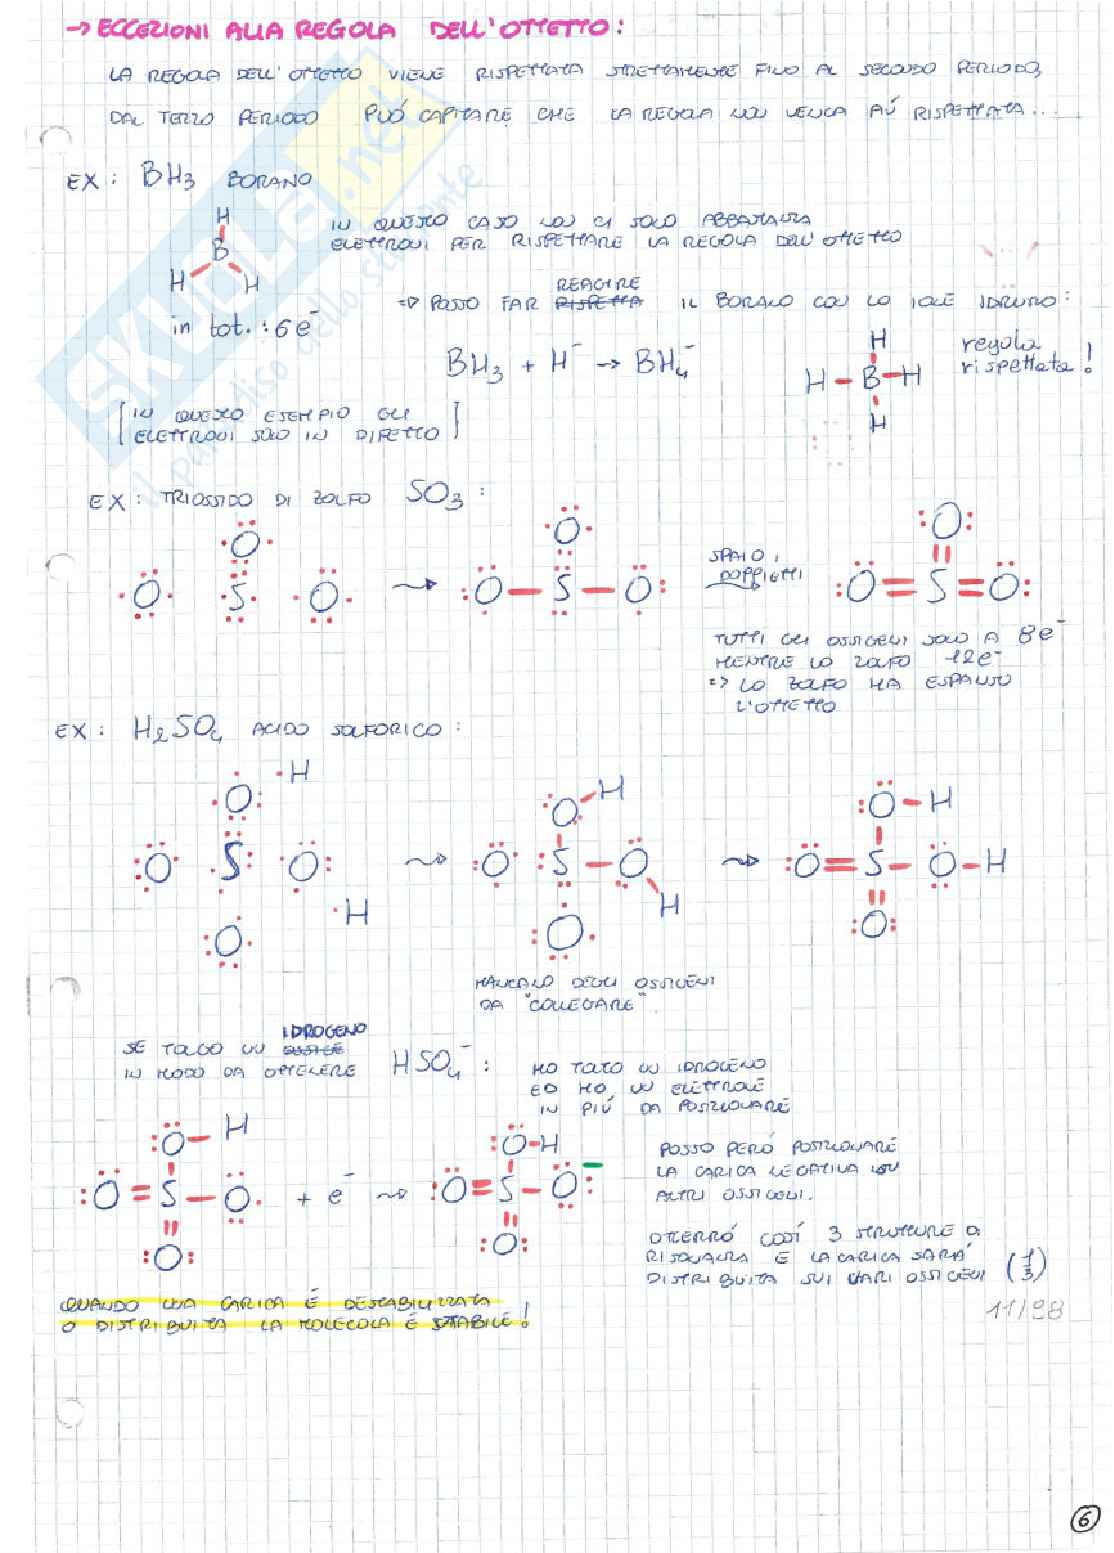 → ECCEZIONI ALLA REGOLA DELL'OTTETTO:
LA REGOLA DELL'OTTETTO VIENE RISPETTATA STRETTAMENTE FINO AL SECONDO PERIODO,
DAL TERZO PERIODO PUÓ CAPITARE CHE LA REGOLA NON VENGA PIÙ RISPETTATA...
EX: BH3 BORANO
H
B
H H
in tot.: 6e-
IN QUESTO CASO NON CI SONO ABBASTANZA
ELETTRONI PER RISPETTARE LA REGOLA DELL'OTTETTO
REAGIRE
=> POSSO FAR RISPETTA IL BORANO CON LO IONE IDRURO:
BH3 + H- → BH4-
H
H B H
H
regola
rispettata!
[IN QUESTO ESEMPIO GLI
ELETTRONI SONO IN DIFETTO]
EX: TRIOSSIDO DI ZOLFO SO3:
O O O
O S O → O S O SPAIO I DOPPIETTI O S O
TUTTI GLI OSSIGENI SONO A 8e-
MENTRE LO ZOLFO 12e-
=> LO ZOLFO HA ESPANSO
L'OTTETTO
EX: H2SO4 ACIDO SOLFORICO:
·H
O O H O H
O S O → O S O → O S O H
·H H
O O O
MANCANO DEGLI OSSIGENI
DA "COLLEGARE".
IDROGENO
SE TOLGO UN OSSIGE
IN MODO DA OTTENERE HSO4-:
HO TOLTO UN IDROGENO
ED HO UN ELETTRONE
IN PIÚ DA POSIZIONARE
O H O-H
O S O + e- → O S O
O O
POSSO PERÓ POSIZIONARE
LA CARICA NEGATIVA SU
ALTRI OSSIGENI.
OTTERRÓ COSÍ 3 STRUTTURE DI
RISONANZA E LA CARICA SARÁ
DISTRIBUITA SUI VARI OSSIGENI (1/3)
QUANDO UNA CARICA É DESTABILIZZATA
O DISTRIBUITA LA MOLECOLA É STABILE!
11/98
6
SKUOLA.net